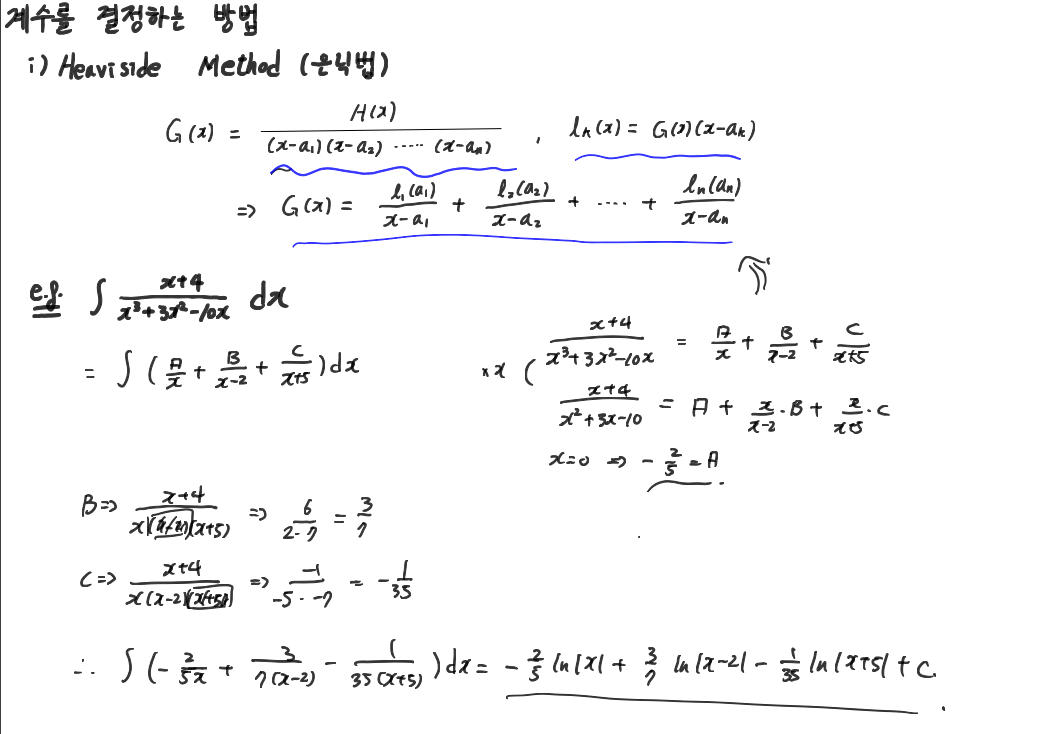 계수를 결정하는 방법
i) Heaviside Method (은닉법)
G(x) = H(x) / (x-a₁)(x-a₂) ····· (x-aₙ) , lₖ(x) = G(x)(x-aₖ)
=> G(x) = l₁(a₁) / x-a₁ + l₂(a₂) / x-a₂ + ···· + lₙ(aₙ) / x-aₙ
e.g. ∫ x+4 / x³+3x²-10x dx
= ∫ ( A/x + B/x-2 + C/x+5 ) dx
×x ( x+4 / x³+3x²-10x = A/x + B/x-2 + C/x+5
x+4 / x²+3x-10 = A + x/x-2 · B + x/x+5 · C
x=0 => - 2/5 = A.
B => x+4 / x(x-2)(x+5) => 6 / 2·7 = 3/7
C => x+4 / x(x-2)(x+5) => -1 / -5·-7 = - 1/35
∴ ∫ (- 2/5x + 3/7(x-2) - 1/35(x+5) ) dx = - 2/5 ln|x| + 3/7 ln|x-2| - 1/35 ln|x+5| + C.